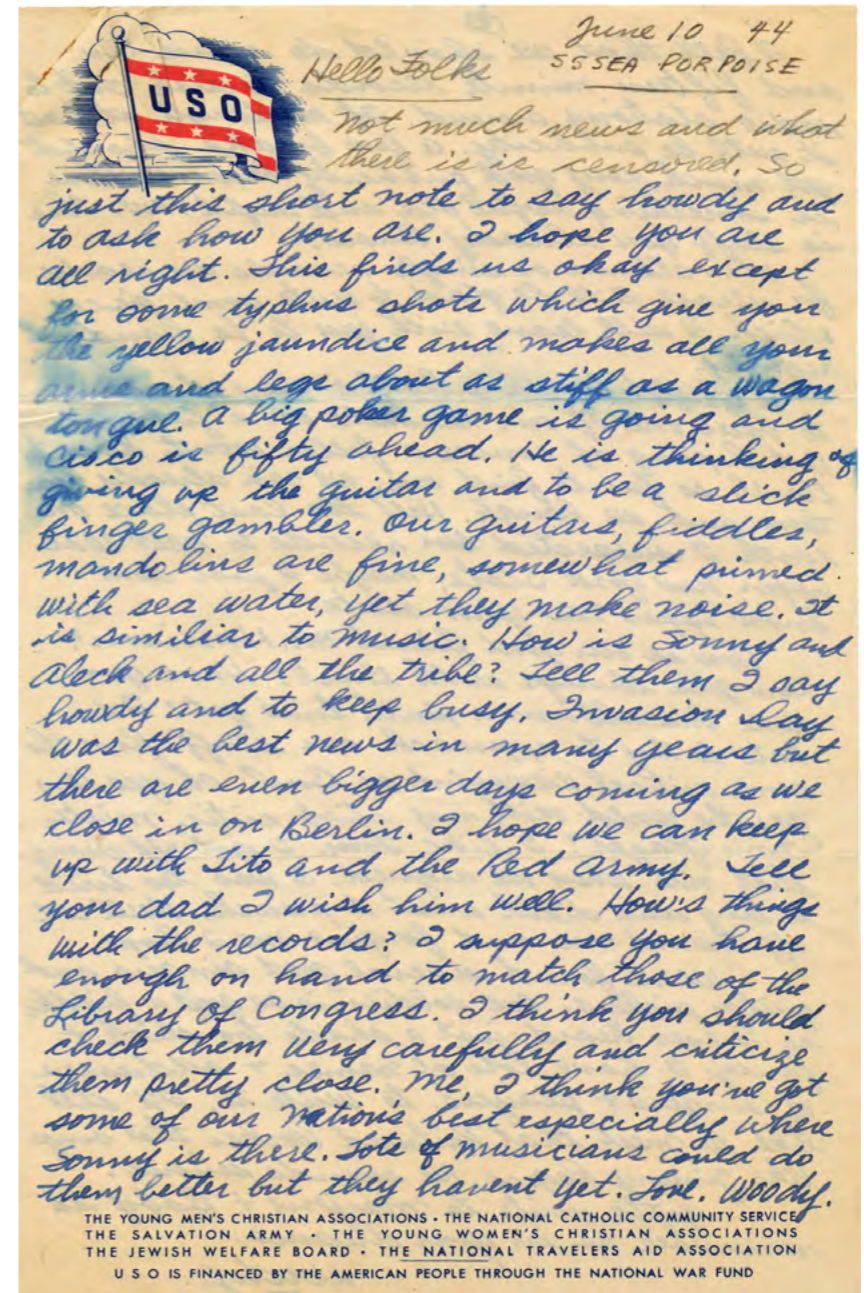 June 10 44
SSSEA PORPOISE
USO
Hello Folks
Not much news and what
there is is censored. So
just this short note to say howdy and
to ask how you are. I hope you are
all right. This finds us okay except
for some typhus shots which give you
the yellow jaundice and makes all your
arms and legs about as stiff as a wagon
tongue. A big poker game is going and
Cisco is fifty ahead. He is thinking of
giving up the guitar and to be a slick
finger gambler. Our guitars, fiddles,
mandolins are fine, somewhat primed
with sea water, yet they make noise. It
is similiar to music. How is Sonny and
Aleck and all the tribe? Tell them I say
howdy and to keep busy. Invasion Day
was the best news in many years but
there are even bigger days coming as we
close in on Berlin. I hope we can keep
up with Tito and the Red Army. Tell
your dad I wish him well. How's things
with the records? I suppose you have
enough on hand to match those of the
Library of Congress. I think you should
check them very carefully and criticize
them pretty close. Me, I think you've got
some of our nation's best especially where
Sonny is there. Lots of musicians could do
them better but they havent yet. Love. Woody.
THE YOUNG MEN'S CHRISTIAN ASSOCIATIONS · THE NATIONAL CATHOLIC COMMUNITY SERVICE
THE SALVATION ARMY · THE YOUNG WOMEN'S CHRISTIAN ASSOCIATIONS
THE JEWISH WELFARE BOARD · THE NATIONAL TRAVELERS AID ASSOCIATION
USO IS FINANCED BY THE AMERICAN PEOPLE THROUGH THE NATIONAL WAR FUND